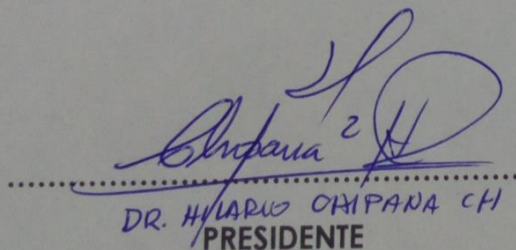 Chipana
DR. HILARIO CHIPANA CH
PRESIDENTE